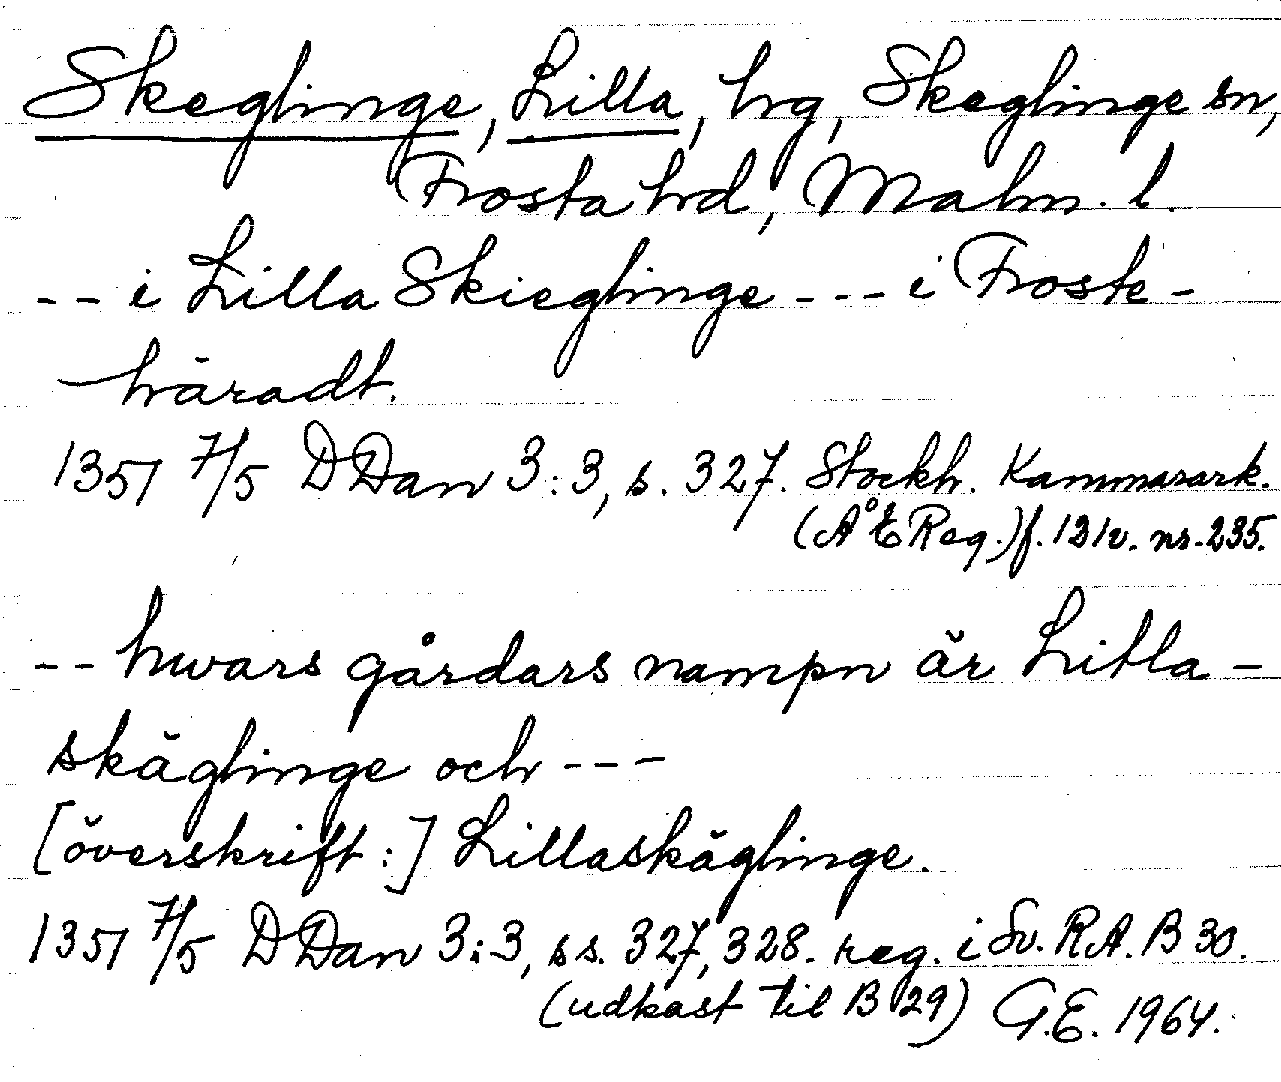 Skeglinge, Lilla, hg, Skeglinge sn,
Frosta hrd, Malm. l.
-- i Lilla Skieglinge --- i Froste-
häradt.
1351 7/5 DDan 3:3, s. 327. Stockh. Kammarark.
(ÅE Reg.) f. 131v. nr. 235.
-- hwars gårdars nampn är Litla-
skäglinge och ---
[överskrift:] Lillaskäglinge.
1351 7/5 DDan 3:3, ss. 327, 328. reg. i Sv. RA. B 30.
(udkast til B 29) G.E. 1964.